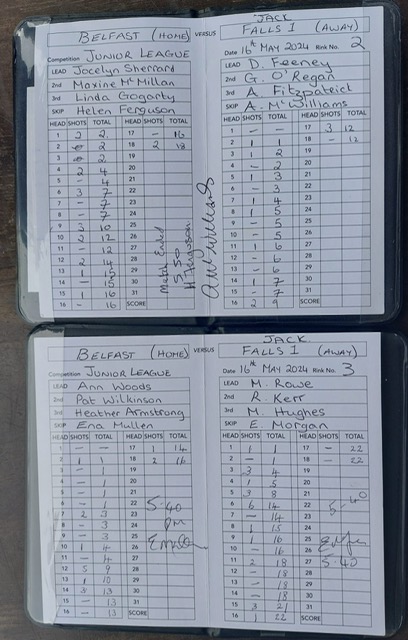 BELFAST (HOME) VERSUS
Competition JUNIOR LEAGUE
LEAD Jocelyn Sherrard
2nd Maxine McMillan
3rd Linda Gogarty
SKIP Helen Ferguson
HEAD SHOTS TOTAL HEAD SHOTS TOTAL
1 2 2 17 - 16
2 2 18 2 18
3 2 19
4 2 4 20
5 - 4 21
6 3 7 22
7 - 7 23
8 - 7 24
9 3 10 25
10 2 12 26
11 - 12 27
12 2 14 28
13 1 15 29
14 - 15 30
15 1 16 31
16 - 16 SCORE
Match Ended
5.50
H Ferguson
JACK
FALLS 1 (AWAY)
Date 16th MAY 2024 Rink No. 2
LEAD D. Feeney
2nd G. O'Regan
3rd A. Fitzpatrick
SKIP A. McWilliams
HEAD SHOTS TOTAL HEAD SHOTS TOTAL
1 - - 17 3 12
2 1 1 18 - 12
3 1 2 19
4 - 2 20
5 1 3 21
6 - 3 22
7 1 4 23
8 1 5 24
9 - 5 25
10 - 5 26
11 1 6 27
12 - 6 28
13 - 6 29
14 1 7 30
15 - 7 31
16 2 9 SCORE
BELFAST (HOME) VERSUS
Competition JUNIOR LEAGUE
LEAD Ann Woods
2nd Pat Wilkinson
3rd Heather Armstrong
SKIP Ena Mullen
HEAD SHOTS TOTAL HEAD SHOTS TOTAL
1 - - 17 1 14
2 1 1 18 2 16
3 - 1 19
4 - 1 20
5 - 1 21
6 - 1 22
7 2 3 23
8 - 3 24
9 - 3 25
10 1 4 26
11 - 4 27
12 5 9 28
13 1 10 29
14 3 13 30
15 - 13 31
16 - 13 SCORE
5-40
pm
JACK
FALLS 1 (AWAY)
Date 16th MAY 2024 Rink No. 3
LEAD M. Rowe
2nd R. Kerr
3rd M. Hughes
SKIP E. Morgan
HEAD SHOTS TOTAL HEAD SHOTS TOTAL
1 1 1 17 - 22
2 - 1 18 - 22
3 3 4 19
4 1 5 20
5 3 8 21
6 6 14 22
7 - 14 23
8 1 15 24
9 1 16 25
10 - 16 26
11 2 18 27
12 - 18 28
13 - 18 29
14 - 18 30
15 3 21 31
16 1 22 SCORE
5-40
5.40